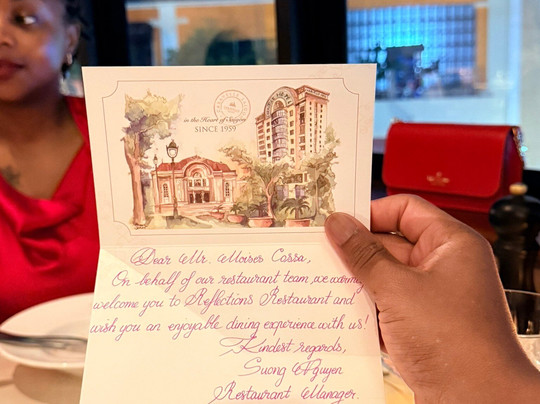 in the Heart of Saigon
SINCE 1959
Dear Mr. Moises Cassa,
On behalf of our restaurant team, we
welcome you to Reflections Restaurant and
wish you an enjoyable dining experience with us!
Kindest regards,
Suong Nguyen
Restaurant Manager.